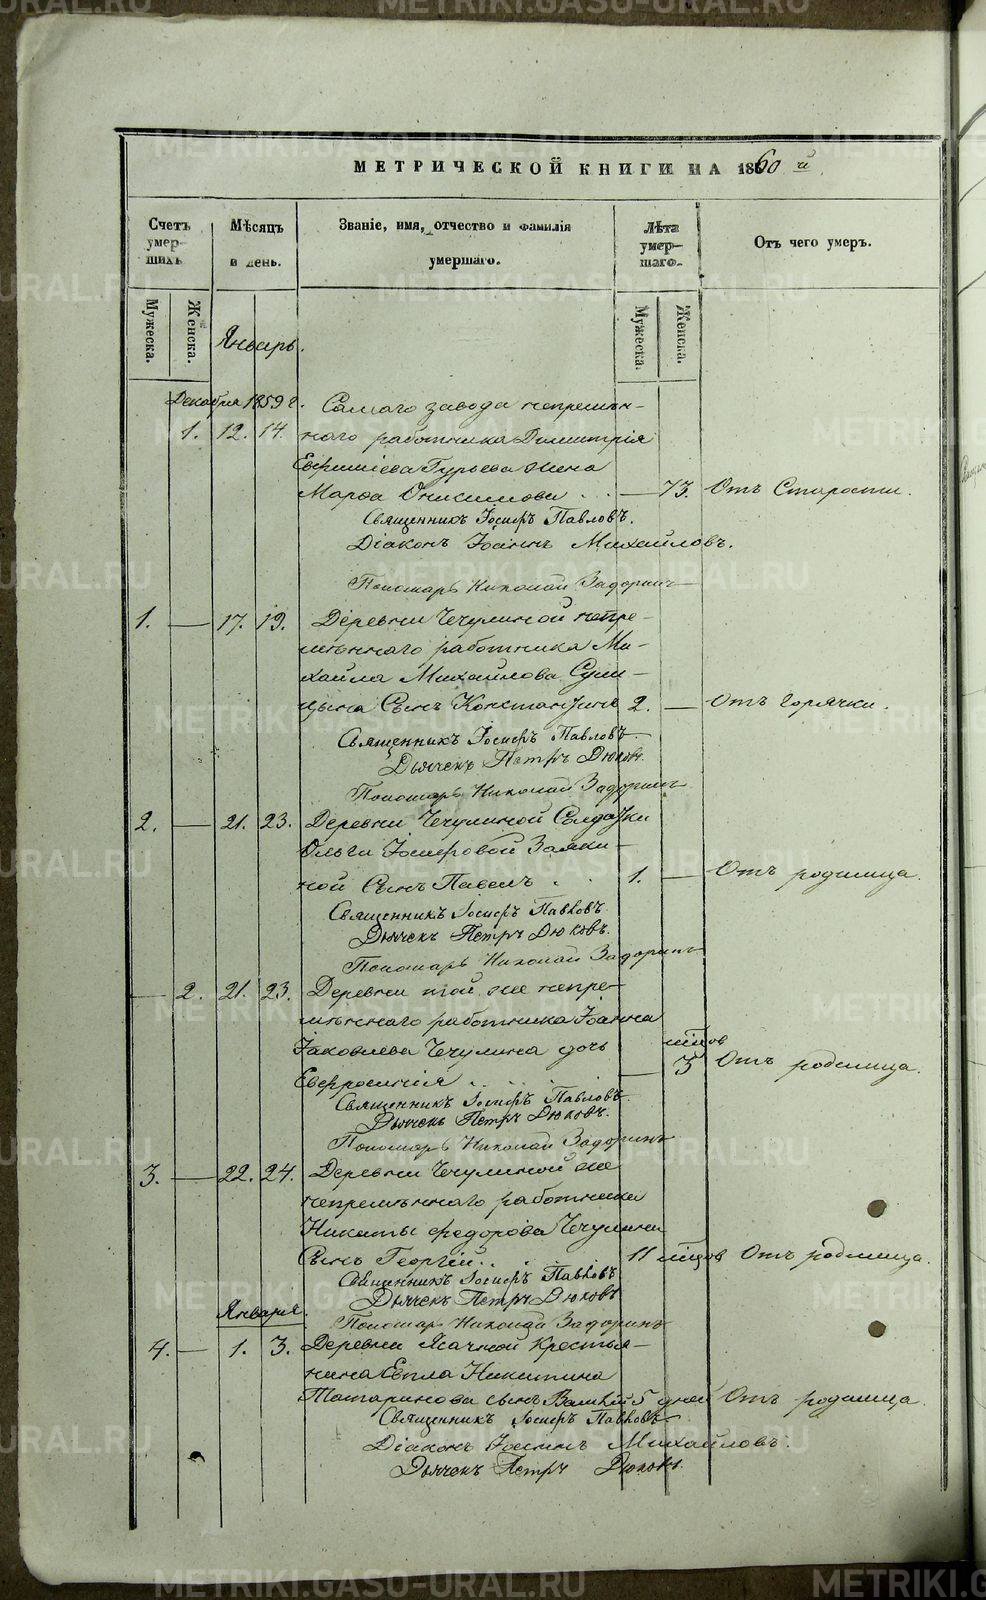 METRIKI.GASO-URAL.RU
МЕТРИЧЕСКОЙ КНИГИ НА 1860 й
Счетъ умер- шихъ
Мѣсяцъ и день.
Званіе, имя, отчество и фамилія умершаго.
Лѣта умер- шаго.
Отъ чего умеръ.
Мужеска. Женска.
Январь.
Мужеска. Женска.
Декабря 1859 г. Самаго завода непремѣн-
1. 12. 14. наго работника Димитрія
Ефиміева Гурьева жена
Марѳа Онисимова . . — 73. Отъ Старости.
Священникъ Іосифъ Павловъ.
Діаконъ Іоаннъ Михайловъ.
Пономарь Николай Задоринъ
1. — 17. 19. Деревни Чечулиной непре-
мѣннаго работника Ми-
хайла Михайлова Сули-
Сынъ Константинъ 2. — Отъ горячки.
Священникъ Іосифъ Павловъ.
Дьячекъ Петръ Дюковъ.
Пономарь Николай Задоринъ
2. — 21. 23. Деревни Чечулиной Солдатки
Ольги Іосифовой Заяки-
ной Сынъ Павелъ . . 1. — Отъ родимца.
Священникъ Іосифъ Павловъ.
Дьячекъ Петръ Дюковъ.
Пономарь Николай Задоринъ
— 2. 21. 23. Деревни той же непре-
мѣннаго работника Іоанна
Іаковлева Чечулина дочь
Евфросинія . . . . — 3 мѣсцов Отъ родимца.
Священникъ Іосифъ Павловъ.
Дьячекъ Петръ Дюковъ.
Пономарь Николай Задоринъ
3. — 22. 24. Деревни Чечулиной же
непремѣннаго работника
Никиты Федорова Чечулина
Сынъ Георгій . . . 11 мѣсцов Отъ родимца.
Священникъ Іосифъ Павловъ
Дьячекъ Петръ Дюковъ
Января. Пономарь Николай Задоринъ
4. — 1. 3. Деревни Ясачной Крестья-
нина Евпла Никитина
Татаринова сынъ Василій 5 дней Отъ родимца.
Священникъ Іосифъ Павловъ
Діаконъ Іоаннъ Михайловъ.
Дьячекъ Петръ Дюковъ.